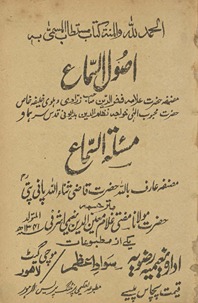 الحمد للہ والمنۃ کتاب مستطاب المسمیٰ بہ
اصول السماع
مصنفہ حضرت علامہ فخر الدین صاحب زرادی دہلوی خلیفہ خاص
حضرت محبوب الٰہی خواجہ نظام الدین بدایونی قدس سرہما و
مسئلۃ السماع
مصنفہ عارف باللہ حضرت قاضی ثناء اللہ پانی پتی
با ترجمہ
حضرت مولانا مفتی غلام معین الدین نعیمی اشرفی
یکے از مطبوعات
ادارہ نعیمیہ رضویہ سواد اعظم موچی گیٹ لاہور
قیمت پچاس پیسے